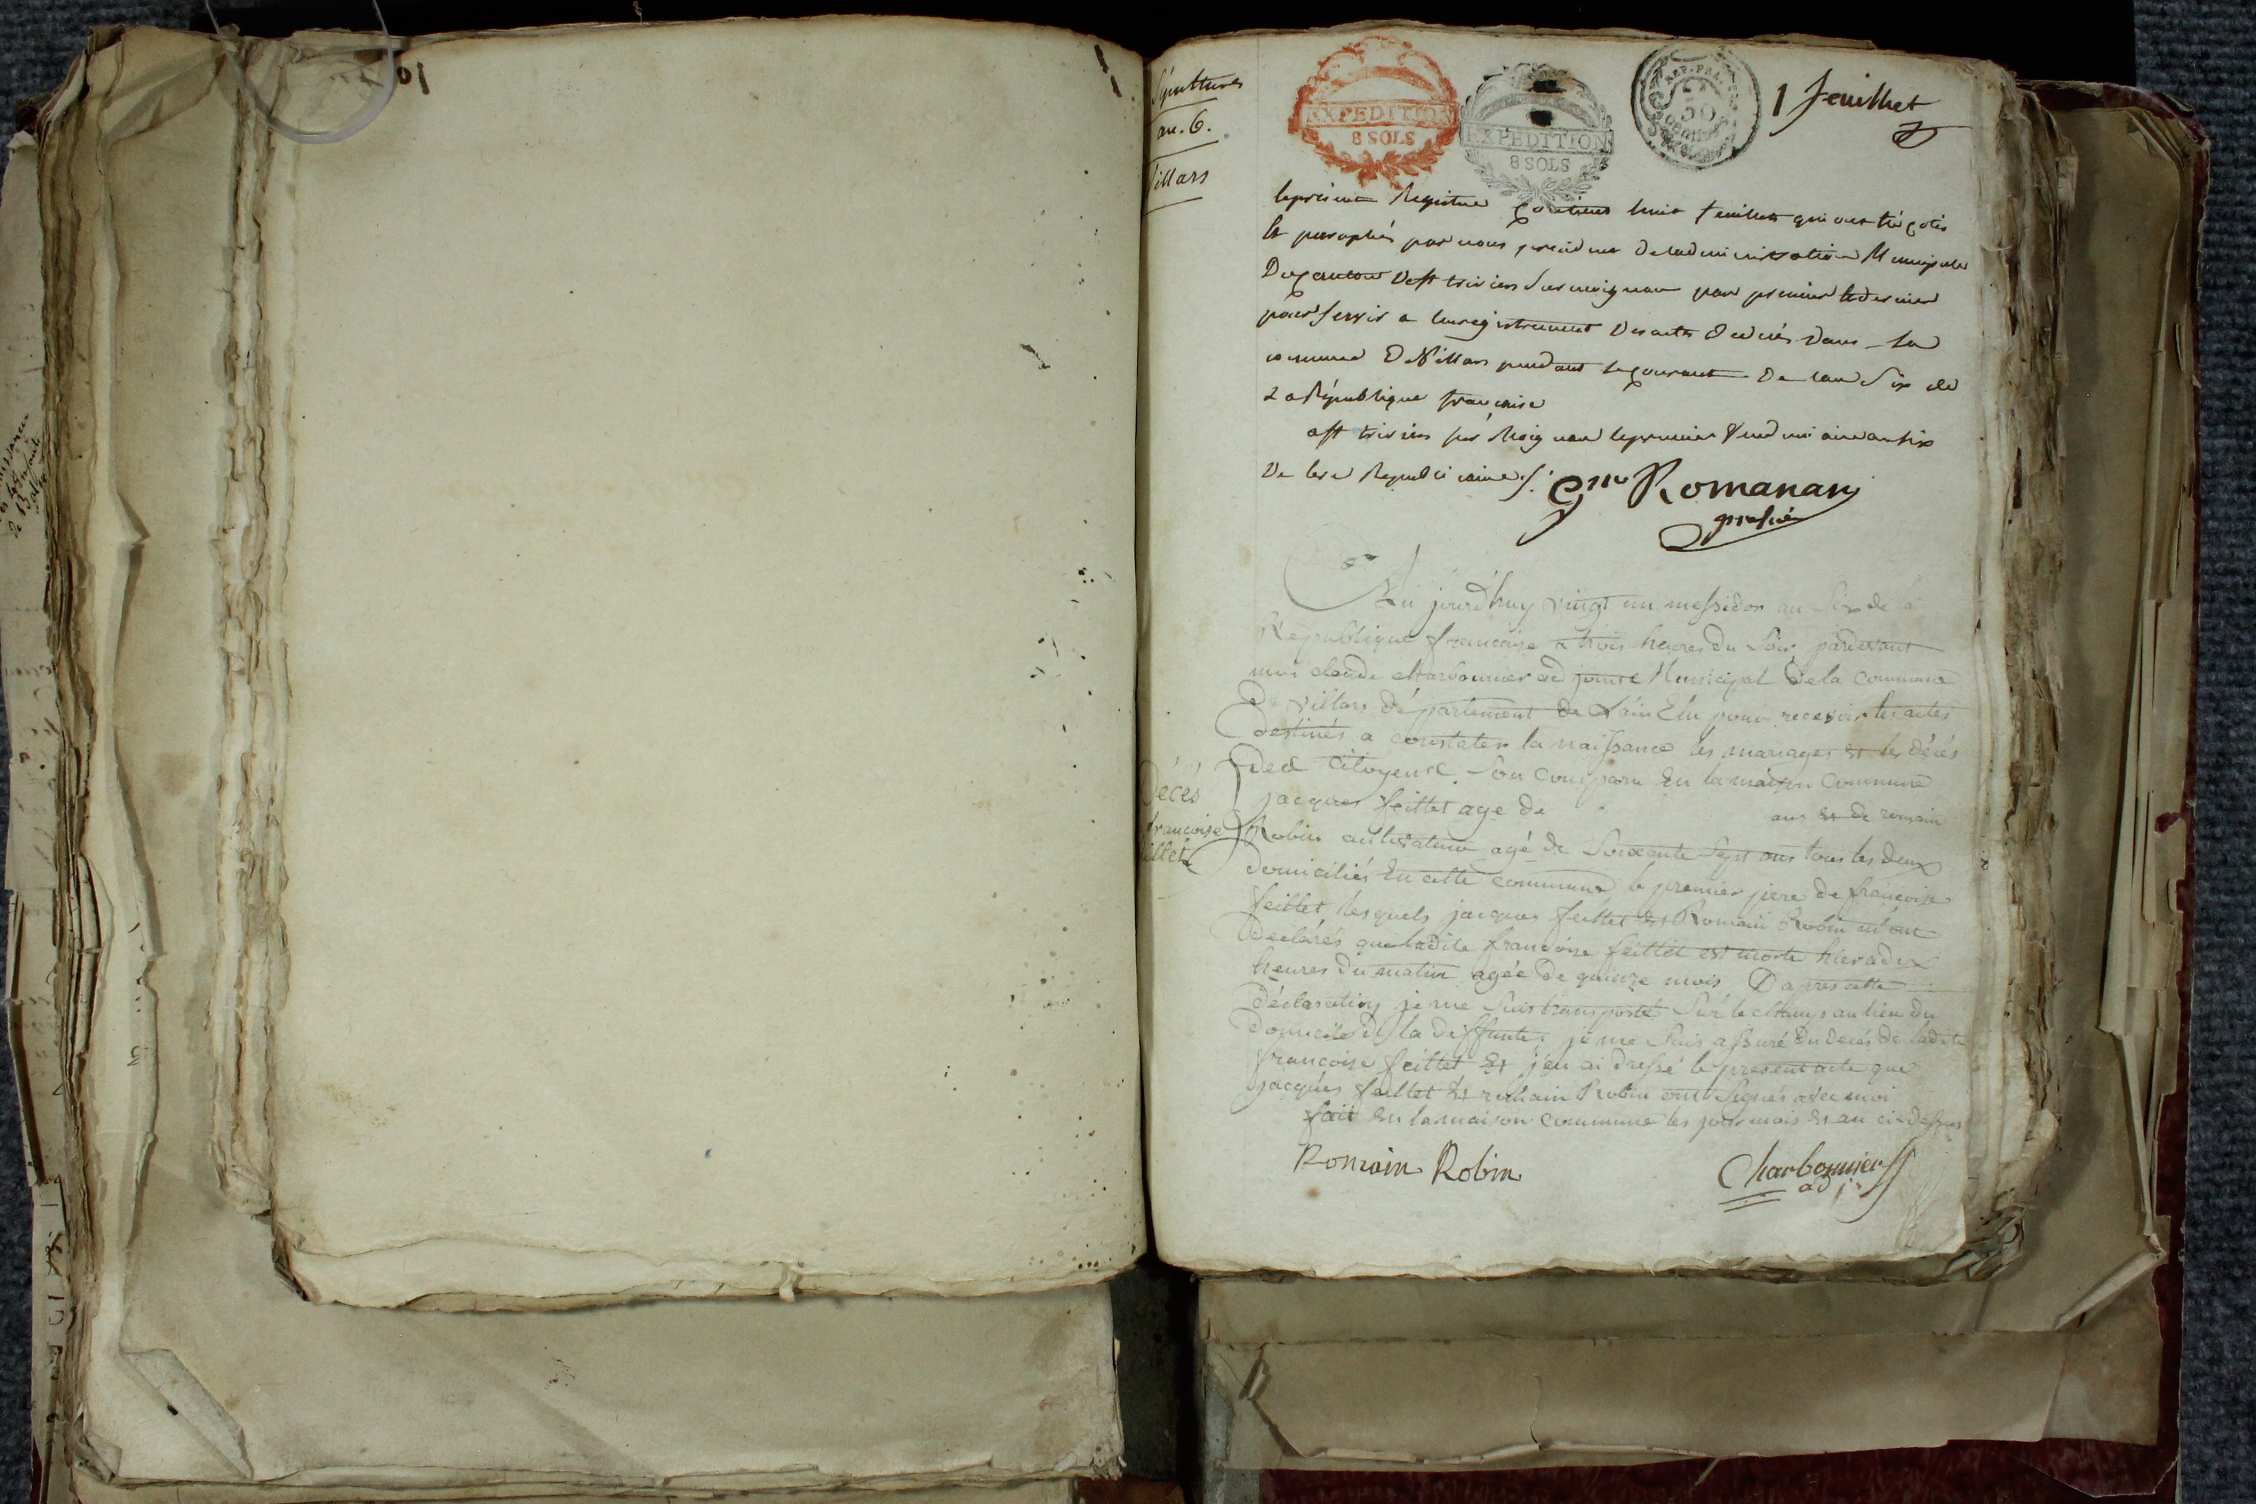 Sépultures
an. 6.
Villars
EXPEDITION
8 SOLS
EXPEDITION
8 SOLS
REP. FRA.
50
1 feuillet
le présent Registre Contient huit feuillets qui ont été cotés
et paraphés par nous president de ladministration Municipale
Du Canton De st trivier Sur moignan par premier et dernier
pour servir a lenregistrement Des actes De décés Dans la
commune De Villars pendant le Courant De lan Six de
La République française
a st trivier sur Moignan le premier Vendemiaire an six
De lere Republicaine
Romanans
présidt
Au jourd'huy vingt un messidor an Six de la
République francaise a trois heures du Soir, pardevant
moi claude charbonnier adjoint Municipal de la Commune
De villars département de L'ain Elu pour recevoir les actes
destinés a constater la naissance les mariages et les décés
Des Citoyens. Son comparu En la maison Commune
Décés
francoise
feillet
jacques feillet age de ans et de romain
Robin cultivateur agé de Soixante Sept ans tous les deux
domiciliés En cette commune le premier pere de francoise
feillet, lesquels jacques feillet et Romain Robin m'ont
Declarés que ladite francoise feillet est morte hier a dix
heures du matin agée de quinze mois D'apres cette
déclaration je me Suis transporté Sur le champ au lieu du
domicile de la deffunte, je me Suis assuré Du decés de ladite
francoise feillet et j'en ai dressé le present acte que
jacques feillet et romain Robin ont Signés avec moi
fait En la maison commune les jour mois et an ci-dessus
Romain Robin
Charbonnier
adj